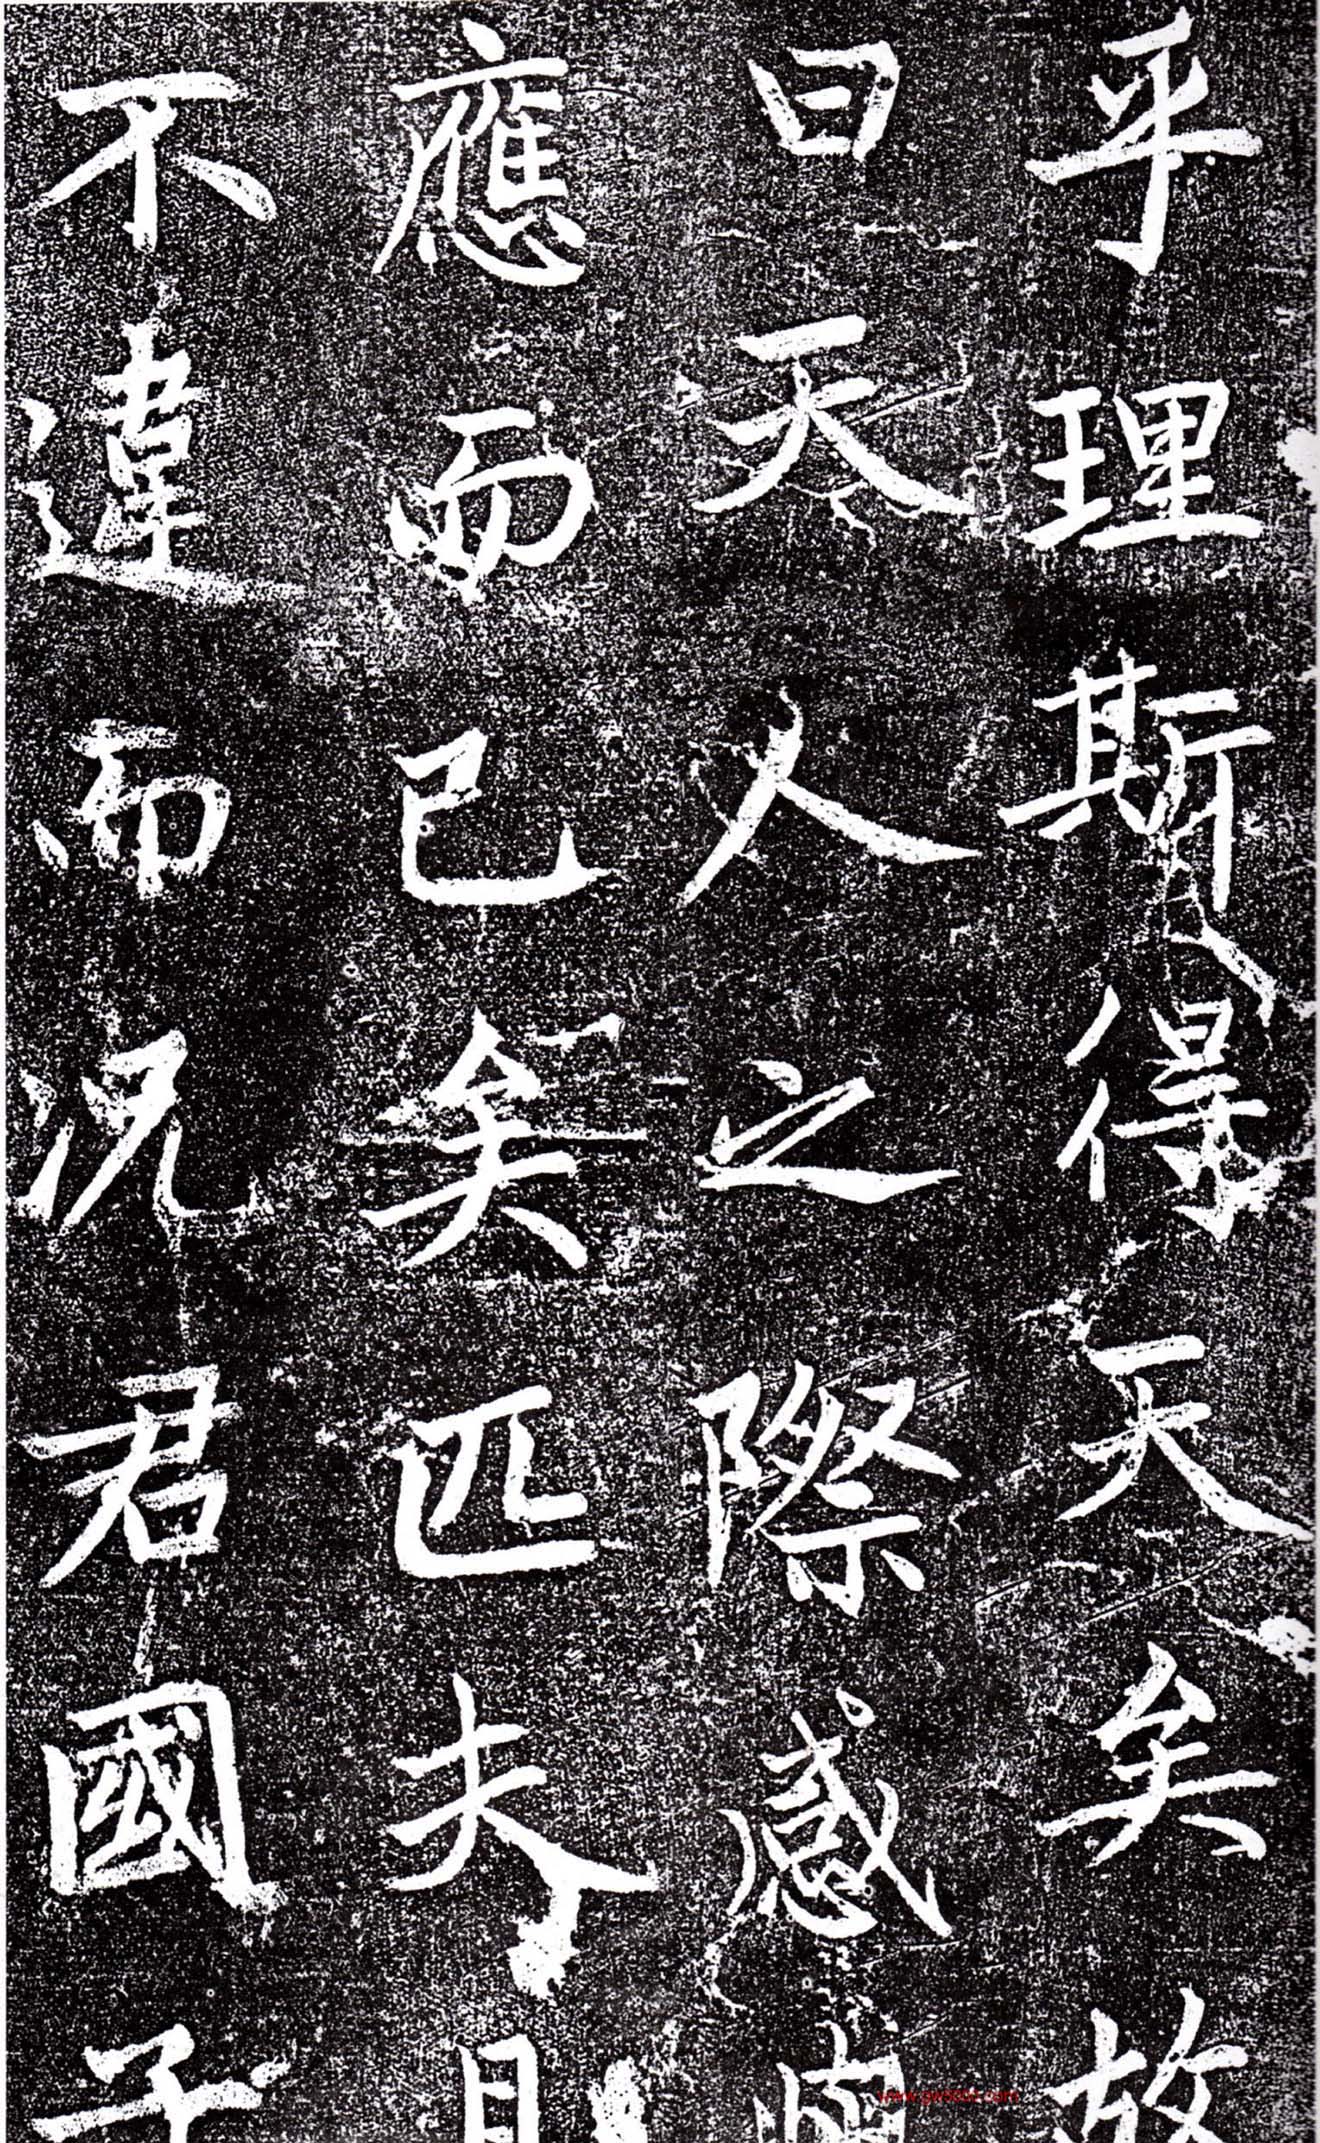 乎理斯得天矣故
曰天人之際感與
應而已矣匹夫
不違而況君國子